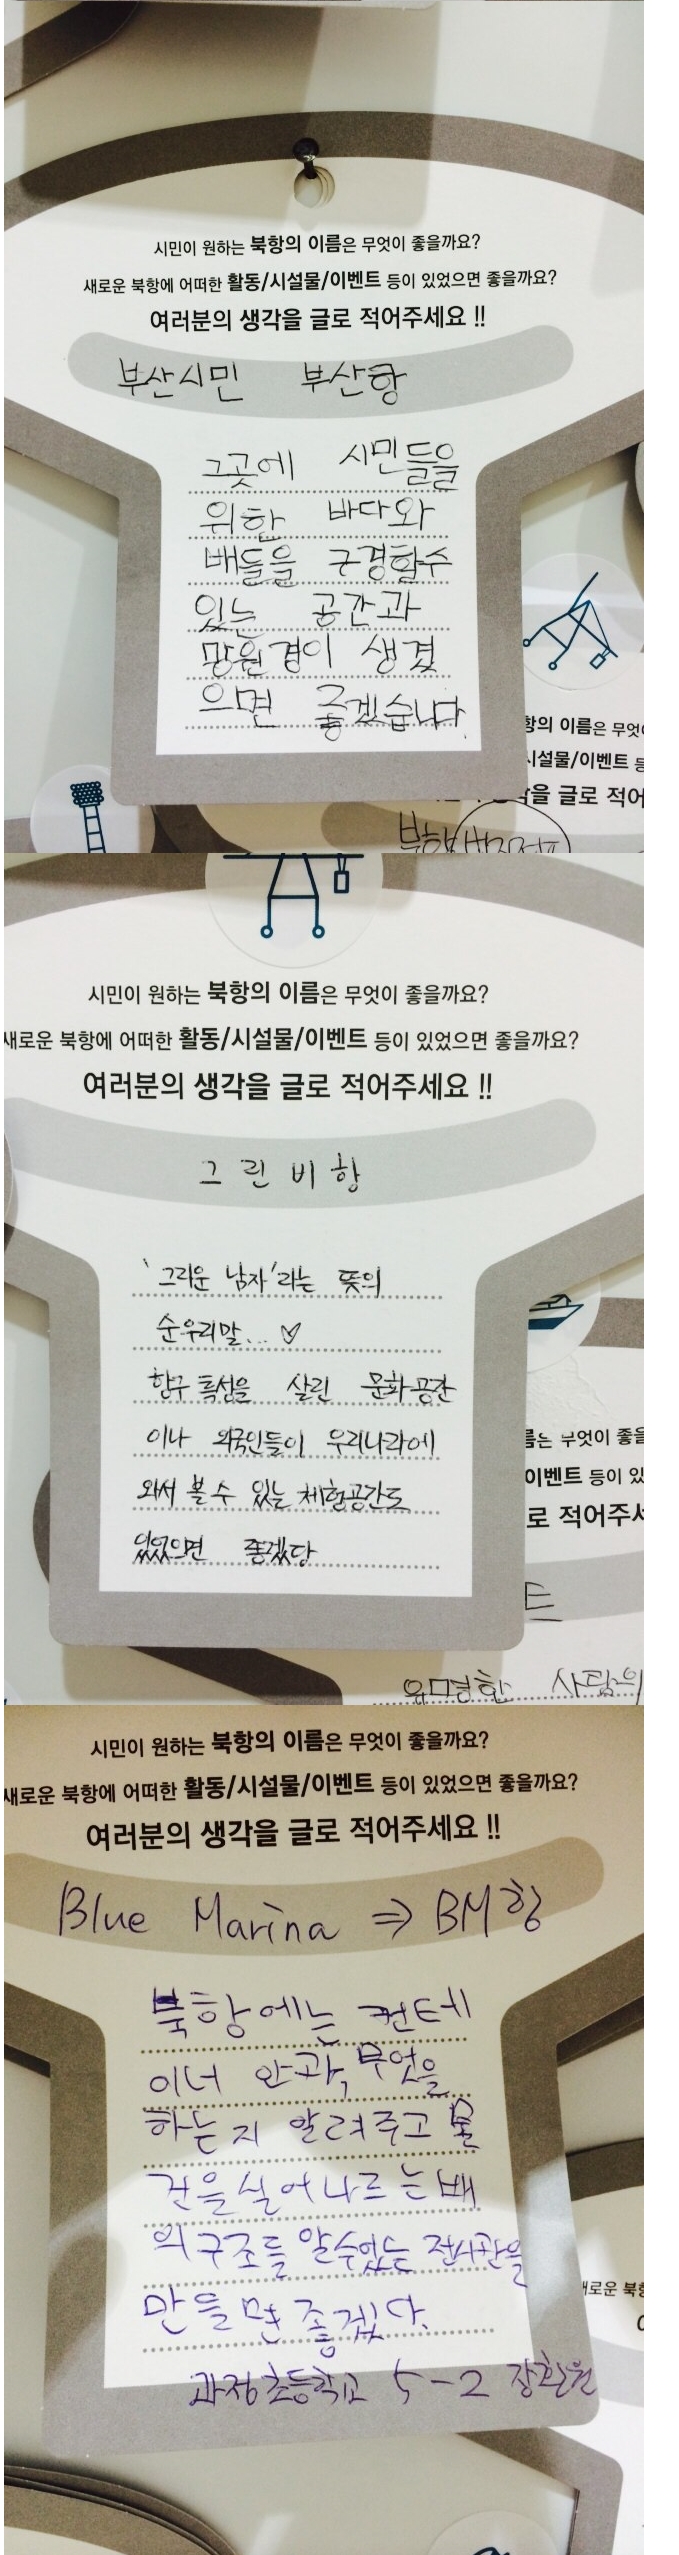 시민이 원하는 북항의 이름은 무엇이 좋을까요?
새로운 북항에 어떠한 활동/시설물/이벤트 등이 있었으면 좋을까요?
여러분의 생각을 글로 적어주세요 !!
부산시민 부산항
그곳에 시민들을
위한 바다와
배들을 구경할수
있는 공간과
망원경이 생겼
으면 좋겠습니다.
항의 이름은 무엇이
시설물/이벤트 등
각을 글로 적어
북항
시민이 원하는 북항의 이름은 무엇이 좋을까요?
새로운 북항에 어떠한 활동/시설물/이벤트 등이 있었으면 좋을까요?
여러분의 생각을 글로 적어주세요 !!
그린비항
'그리운 남자'라는 뜻의
순우리말... ♡
항구 특성을 살린 문화공간
이나 외국인들이 우리나라에
와서 볼 수 있는 체험공간도
있었으면 좋겠당
름은 무엇이 좋을
이벤트 등이 있
로 적어주세
트
유명한 사람의
시민이 원하는 북항의 이름은 무엇이 좋을까요?
새로운 북항에 어떠한 활동/시설물/이벤트 등이 있었으면 좋을까요?
여러분의 생각을 글로 적어주세요 !!
Blue Marina ⇒ BM항
북항에는 컨테
이너 안과, 무엇을
하는지 알려주고 물
건을 실어 나르는 배
의 구조를 알수있는 전시관을
만들면 좋겠다.
과정초등학교 5-2 장환원
새로운 북항